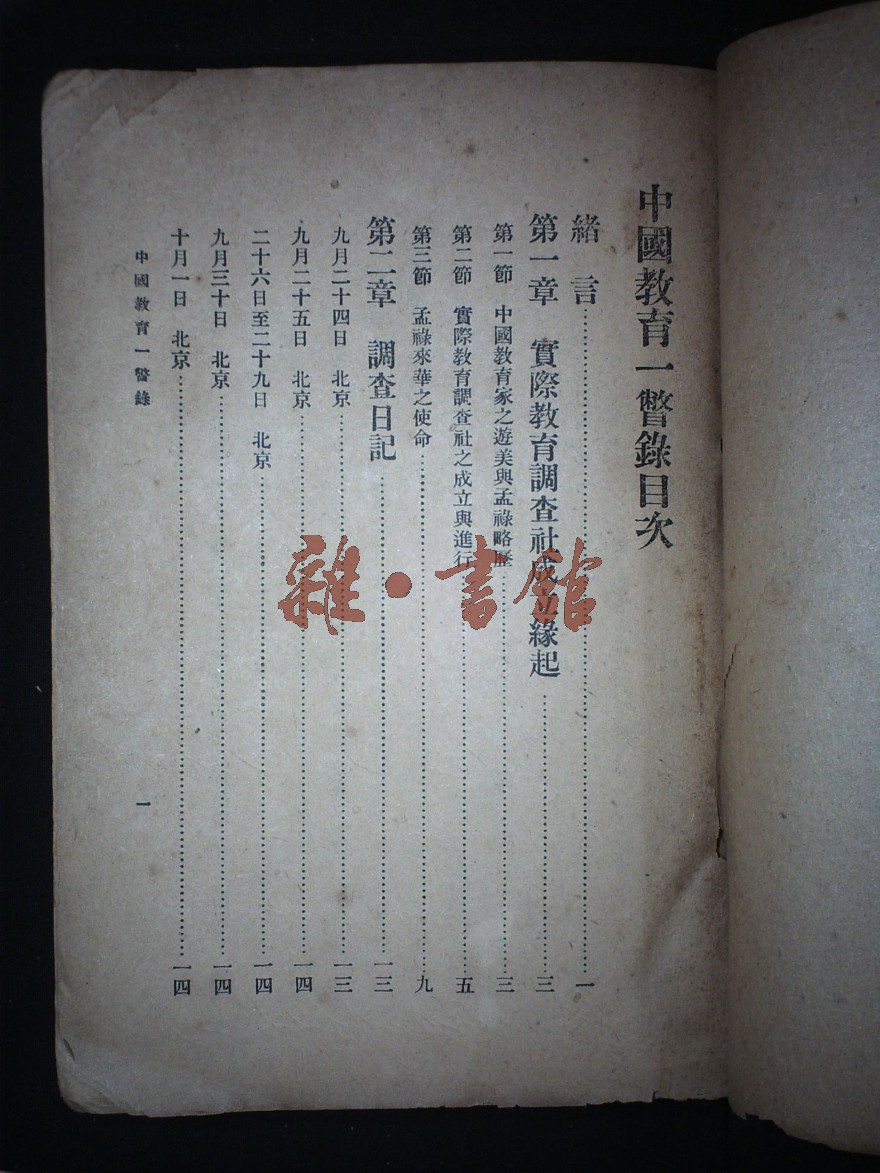 中國教育一瞥錄目次
緒言……一
第一章 實際教育調查社成立緣起……三
第一節 中國教育家之遊美與孟祿略歷……三
第二節 實際教育調查社之成立與進行……五
第三節 孟祿來華之使命……九
第二章 調查日記……一三
九月二十四日 北京……一三
九月二十五日 北京……一四
二十六日至二十九日 北京……一四
九月三十日 北京……一四
十月一日 北京……一四
中國教育一瞥錄
一
雜·書館